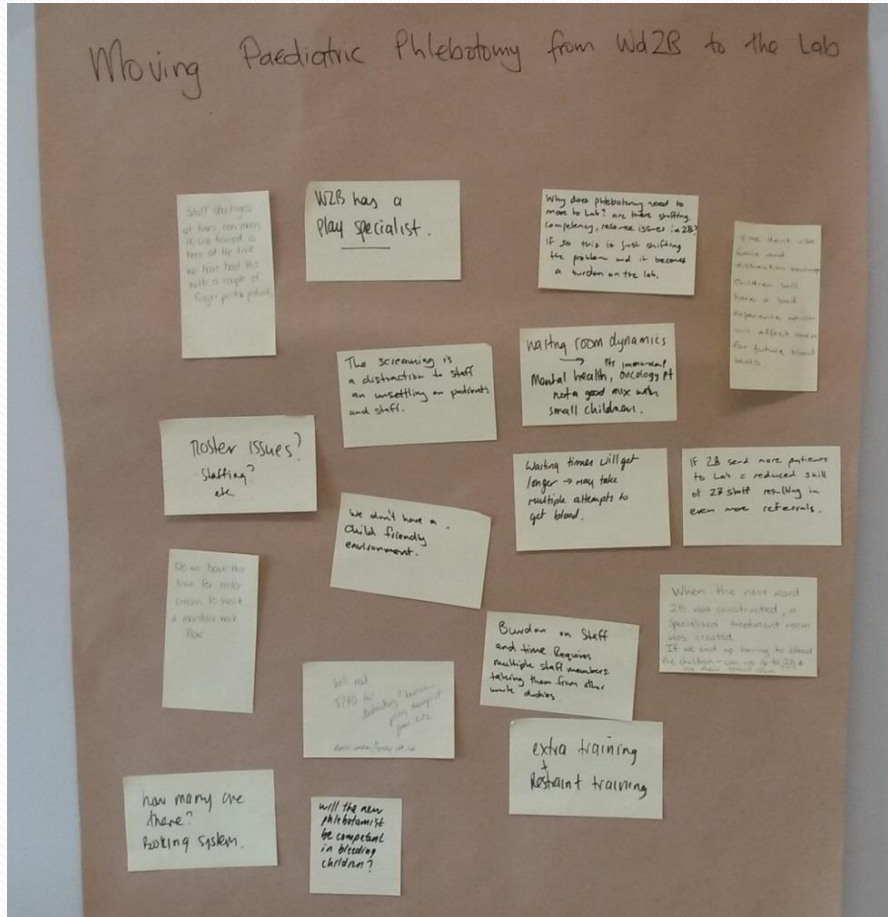 Moving Paediatric Phlebotomy from Wd2B to the Lab
Staff shortages
at times can mean
no one trained is
here at the time
we have had this
with a couple of
finger prick patients
W2B has a
Play specialist.
Why does phlebotomy need to
move to Lab? are there staffing,
competency, resource issues in 2B?
If so this is just shifting
the problem and it becomes
a burden on the lab.
If we don't use
and
distraction
children will
have a bad
experience which
will affect them
for future blood
tests
The screaming is
a distraction to staff
an unsettling on patients
and staff.
Waiting room dynamics
→ Pts
Mental health, oncology pt
not a good mix with
small children.
Roster issues?
Staffing?
etc
Waiting times will get
longer → may take
multiple attempts to
get blood.
If 2B send more patients
to Lab = reduced skill
of 2B staff resulting in
even more referrals.
We don't have a
Child friendly
environment.
Do we have the
time for
cream to work
& maintain work
flow
When the new ward
2B was constructed, a
specialised treatment room
was created.
If we end up having to bleed
the children - can we go to 2B &
use their
Burden on Staff
and time. Requires
multiple staff members
taking them from other
work duties.
Will need
for
play
extra training
+
Restraint training
how many are
there?
Booking system.
will the new
phlebotomist
be competent
in bleeding
children?